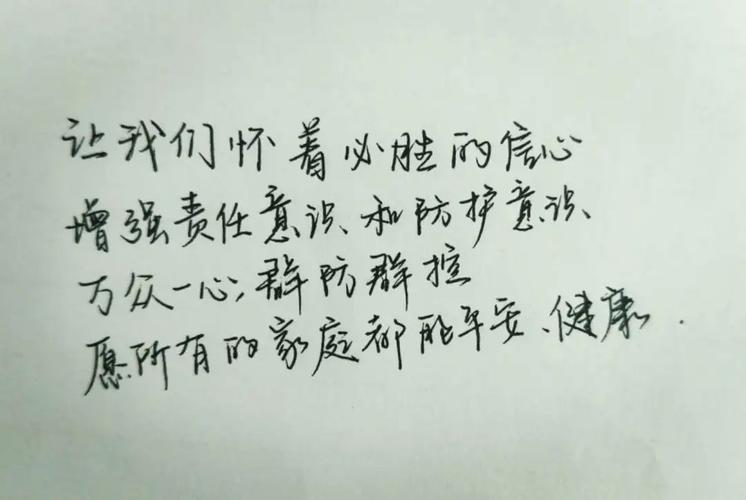 让我们怀着必胜的信心
增强责任意识、和防护意识、
万众一心,群防群控
愿所有的家庭都能平安、健康.